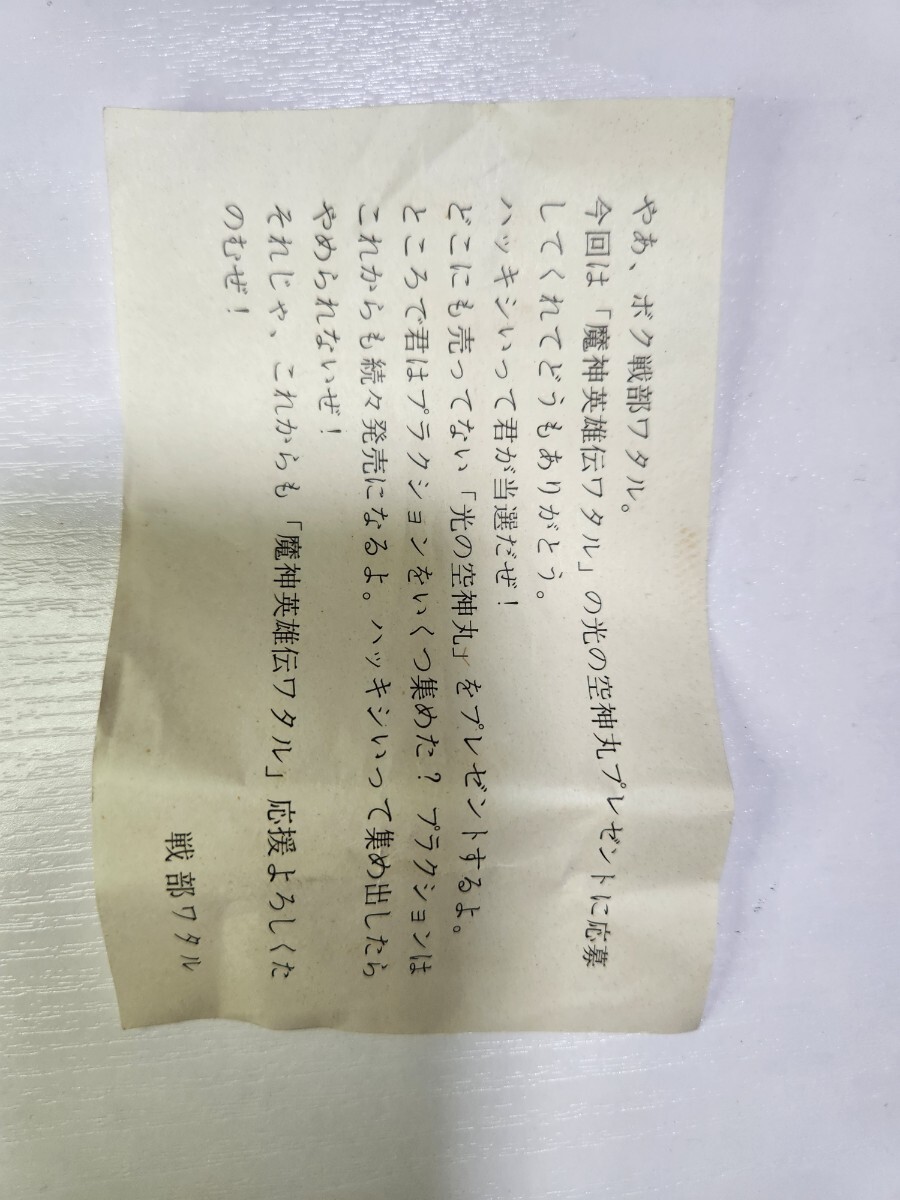 やぁ、ボク戦部ワタル。
今回は「魔神英雄伝ワタル」の光の空神丸プレゼントに応募
してくれてどうもありがとう。
ハッキシいって君が当選だぜ!
どこにも売ってない「光の空神丸」をプレゼントするよ。
ところで君はプラクションをいくつ集めた? プラクションは
これからも続々発売になるよ。ハッキシいって集め出したら
やめられないぜ!
それじゃ、これからも「魔神英雄伝ワタル」応援よろしくた
のむぜ!
戦部ワタル